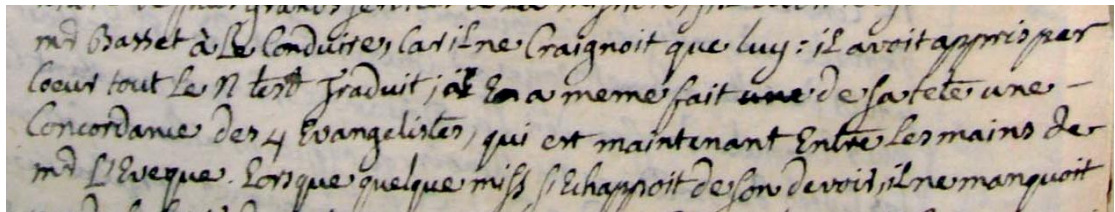 mr Basset à Le Conduire, Car il ne Craignoit que luy: il avoit appris per
Coeur tout Le N testt Traduit; il En a meme fait une de sa tete une -
Concordance des 4 Evangelistes, qui est maintenant Entre Les mains de
mr L'Eveque. Lorsque quelque miss s'Echappoit de son devoir, il ne manquoit